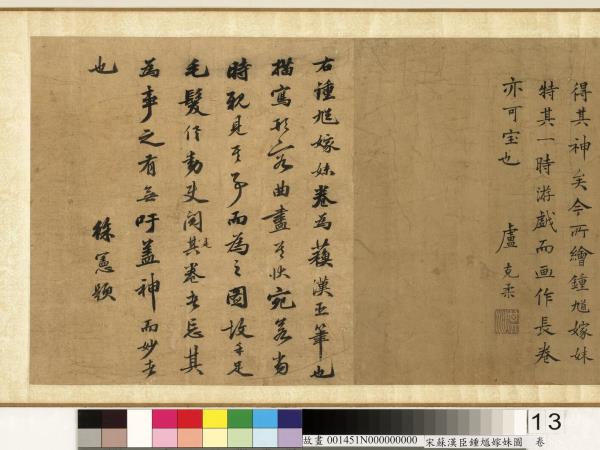 得其神矣今所繪鍾馗嫁妹
特其一時游戲而画作長卷
亦可宝也
盧克柔
右鍾馗嫁妹卷為蘇漢臣筆也
描寫形容曲盡其妙宛若當
時親見其事而為之圖故手足
毛髮作動使閱是其卷者忘其
為事之有無吁蓋神而妙者
也
徐憲題
13
故畫 001451N000000000
宋蘇漢臣鍾馗嫁妹圖 卷